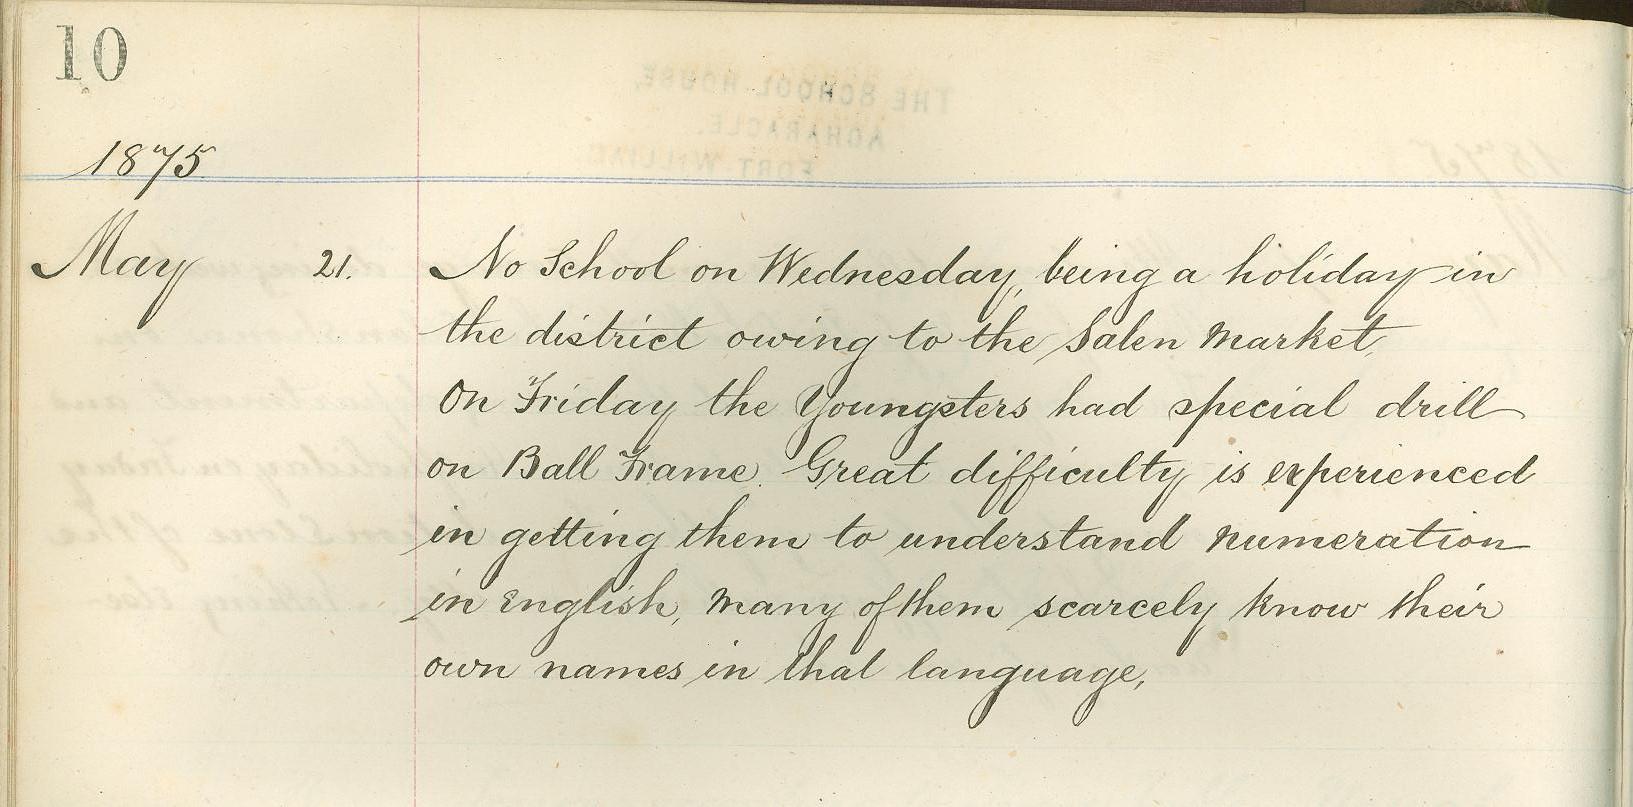 10
THE SCHOOL HOUSE,
ACHARACLE.
FORT WILLIAM
1875
May 21. No School on Wednesday, being a holiday in
the district owing to the Salen Market,
On Friday the Youngsters had special drill
on Ball Frame. Great difficulty is experienced
in getting them to understand numeration
in English, Many of them scarcely know their
own names in that language,